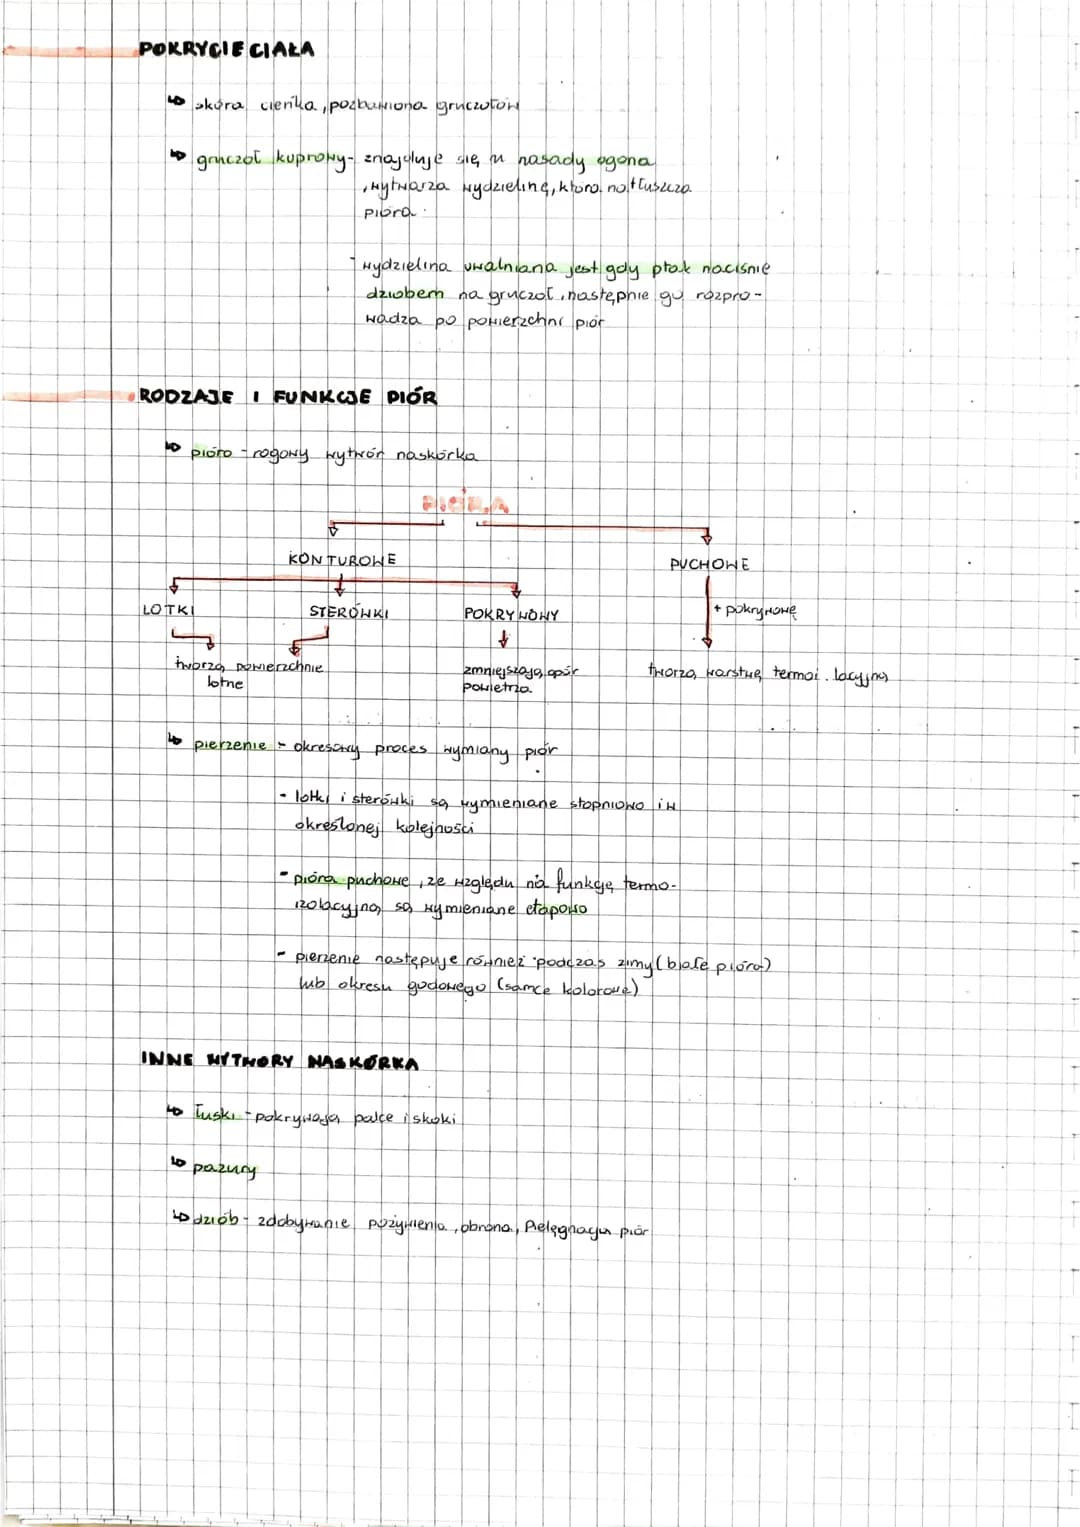 POKRYCIE CIAŁA
↳ skóra cienka, pozbawiona gruczołów
↳ gruczoł kuprowy - znajduje się u nasady ogona
, wytwarza wydzielinę, która natłuszcza
pióra
- wydzielina uwalniana jest gdy ptak naciśnie
dziobem na gruczoł, następnie go rozpro-
wadza po powierzchni piór
RODZAJE I FUNKCJE PIÓR
↳ pióro - rogowy wytwór naskórka
PIÓRA
KONTUROWE PUCHOWE
LOTKI STERÓWKI POKRYWOWY + pokrywowe
tworzą powierzchnie zmniejszają opór tworzą warstwę termoi.lacyjną
lotne powietrza
↳ pierzenie - okresowy proces wymiany piór
- lotki i sterówki są wymieniane stopniowo i w
określonej kolejności
- pióra puchowe, ze względu na funkcję termo-
izolacyjną są wymieniane etapowo
- pierzenie następuje również podczas zimy (białe pióra)
lub okresu godowego (samce kolorowe)
INNE WYTWORY NASKÓRKA
↳ łuski - pokrywają palce i skoki
↳ pazury
↳ dziób - zdobywanie pożywienia, obrona, Pielęgnacja piór